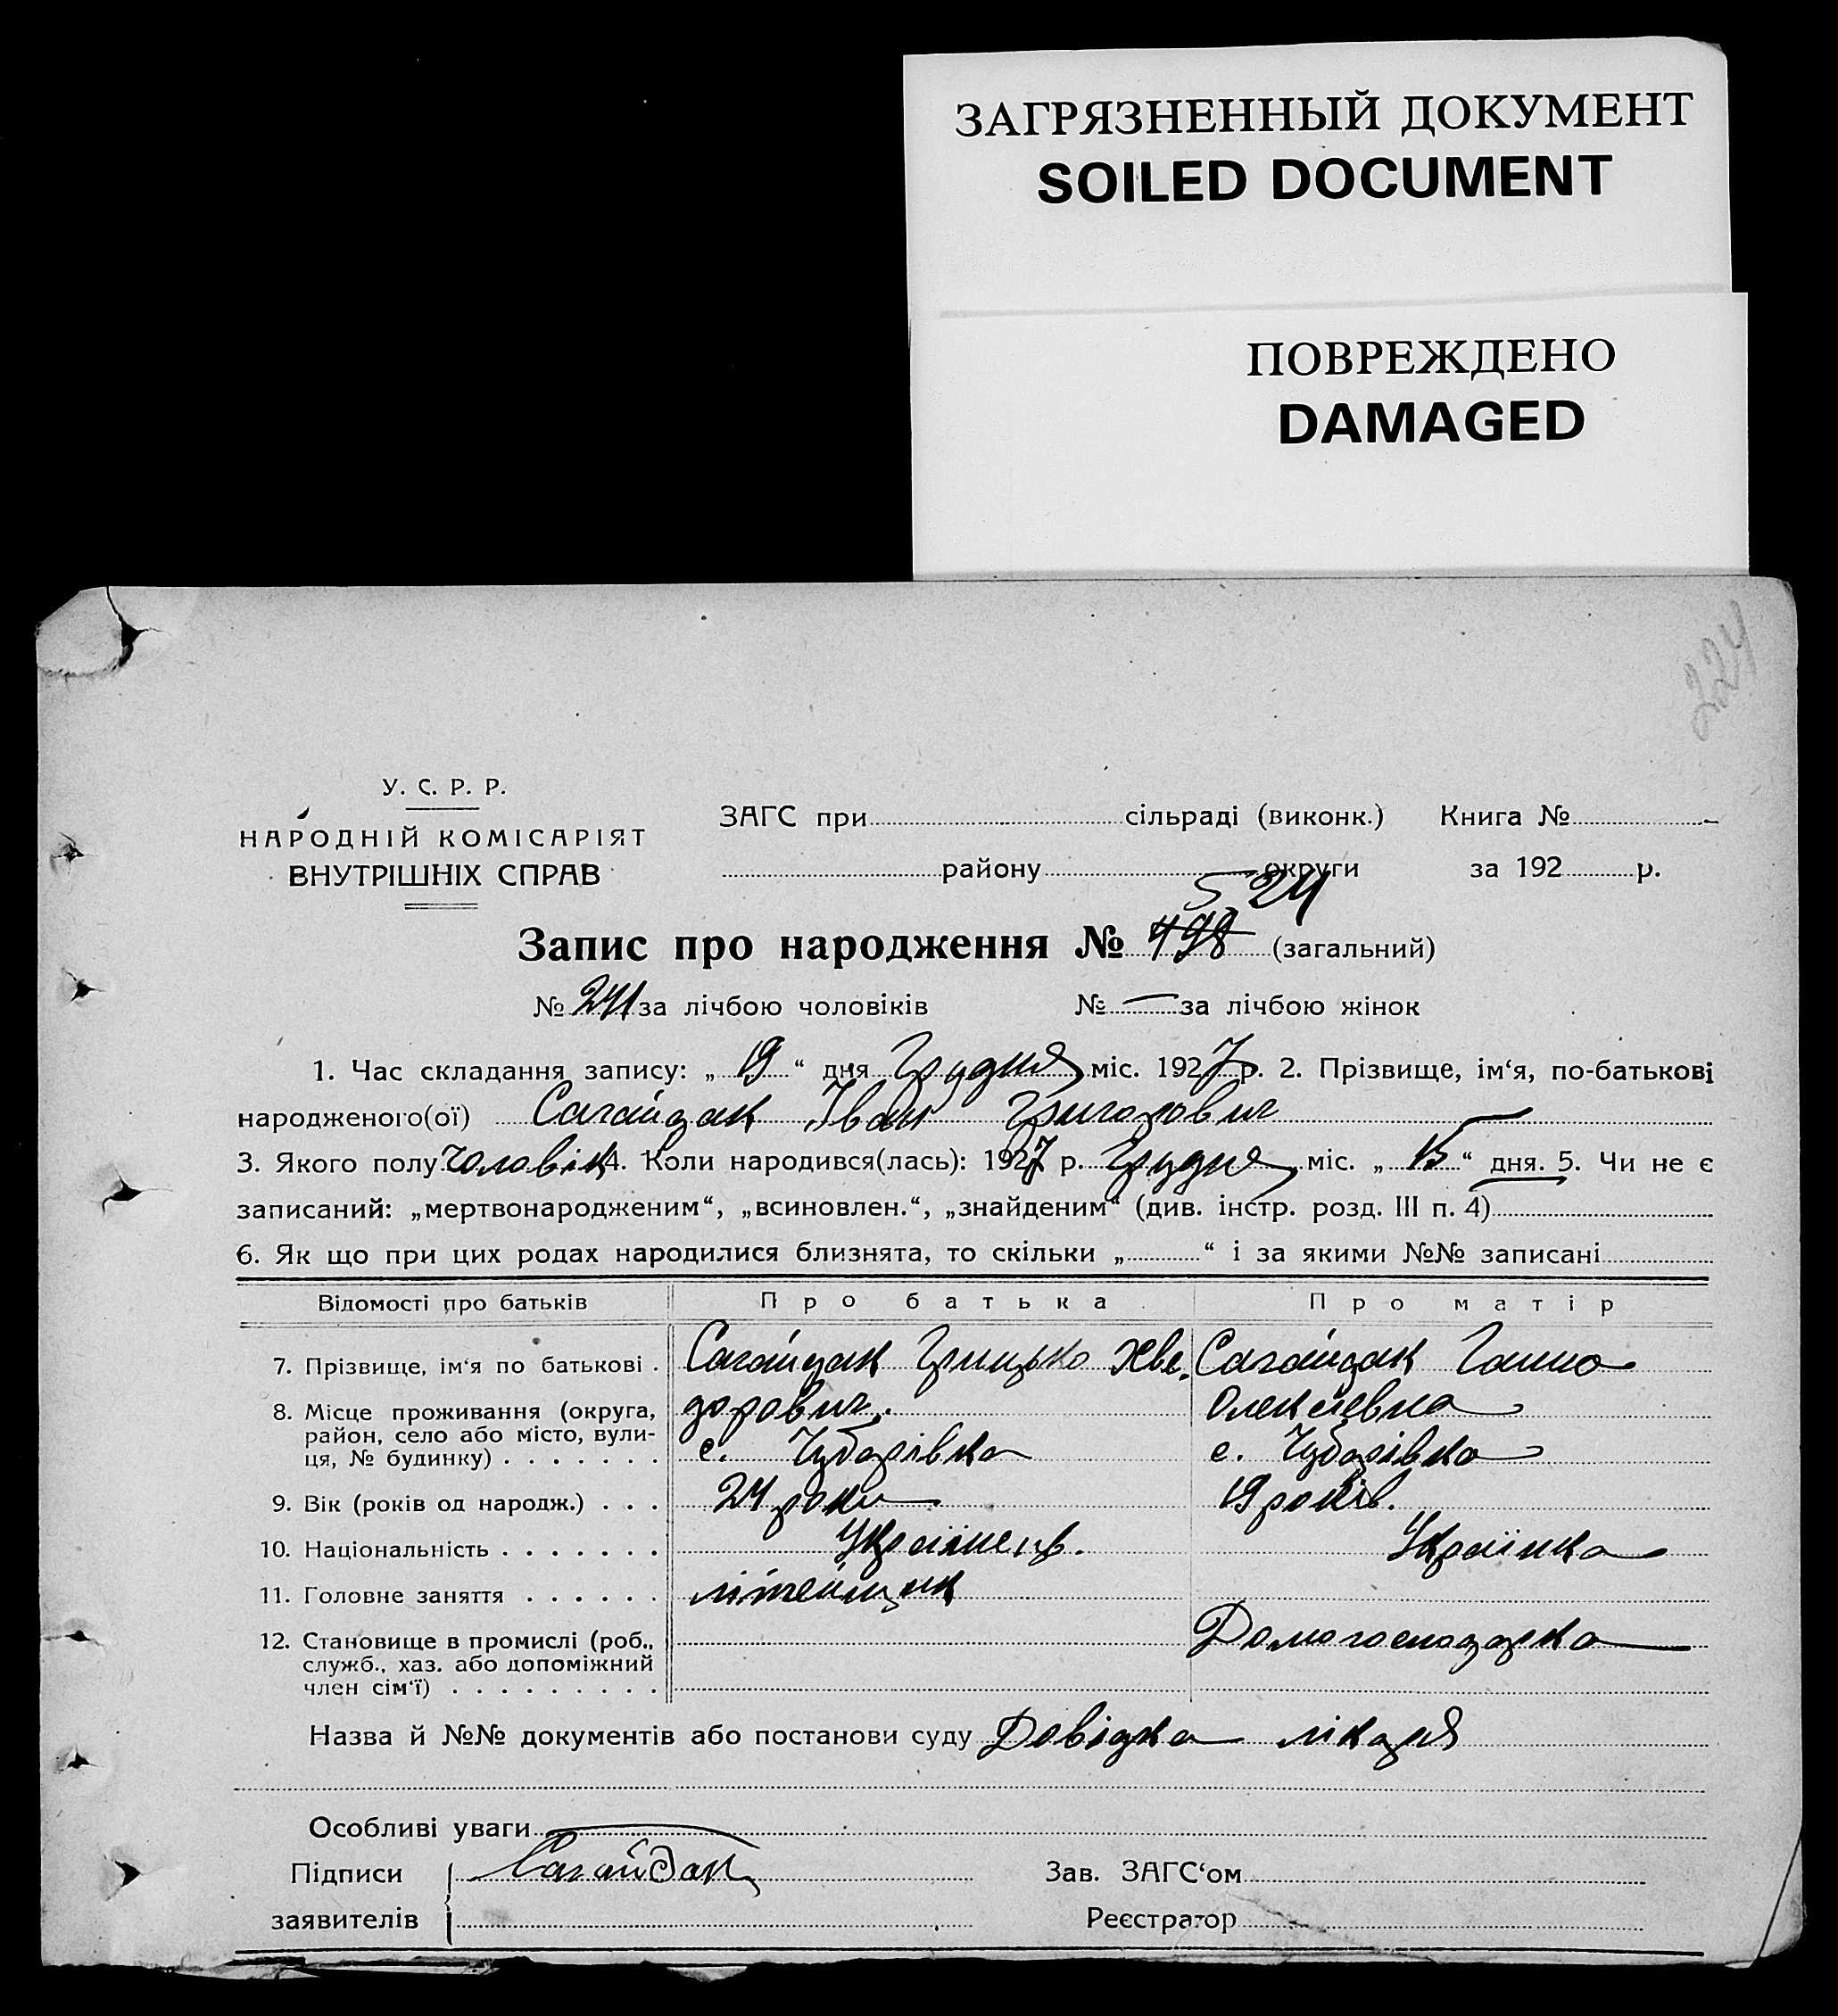 ЗАГРЯЗНЕННЫЙ ДОКУМЕНТ
SOILED DOCUMENT
ПОВРЕЖДЕНО
DAMAGED
224
У. С. Р. Р.
НАРОДНІЙ КОМІСАРІЯТ
ВНУТРІШНІХ СПРАВ
ЗАГС при сільраді (виконк.) Книга №
району округи за 192 р.
524
Запис про народження № 498 (загальний)
№ 241 за лічбою чоловіків № — за лічбою жінок
1. Час складання запису: „ 19 “ дня Грудня міс. 1927 р. 2. Прізвище, ім‘я, по-батькові
народженого(ої) Сагайдак Іван Григорович
3. Якого полу Чоловік 4. Коли народився(лась): 1927 р. Грудня міс. „ 15 “ дня. 5. Чи не є
записаний: „мертвонародженим“, „всиновлен.“, „знайденим“ (див. інстр. розд. III п. 4)
6. Як що при цих родах народилися близнята, то скільки „ “ і за якими №№ записані
Відомості про батьків Про батька Про матір
7. Прізвище, ім‘я по батькові . Сагайдак Грицько Хве- Сагайдак Ганна
8. Місце проживання (округа, дорович. Олексіевна
район, село або місто, вули-
ця, № будинку) . . . . . . . с. Чубарівка с. Чубарівка
9. Вік (років од народж.) . . . 24 роки 19 років.
10. Національність . . . . . . . Українець. Українка
11. Головне заняття . . . . . . літейщик
12. Становище в промислі (роб., Домогосподарка
служб., хаз. або допоміжний
член сім‘ї) . . . . . . . . .
Назва й №№ документів або постанови суду Довідка лікаря
Особливі уваги
Підписи Сагайдак Зав. ЗАГС‘ом
заявителів Реєстратор